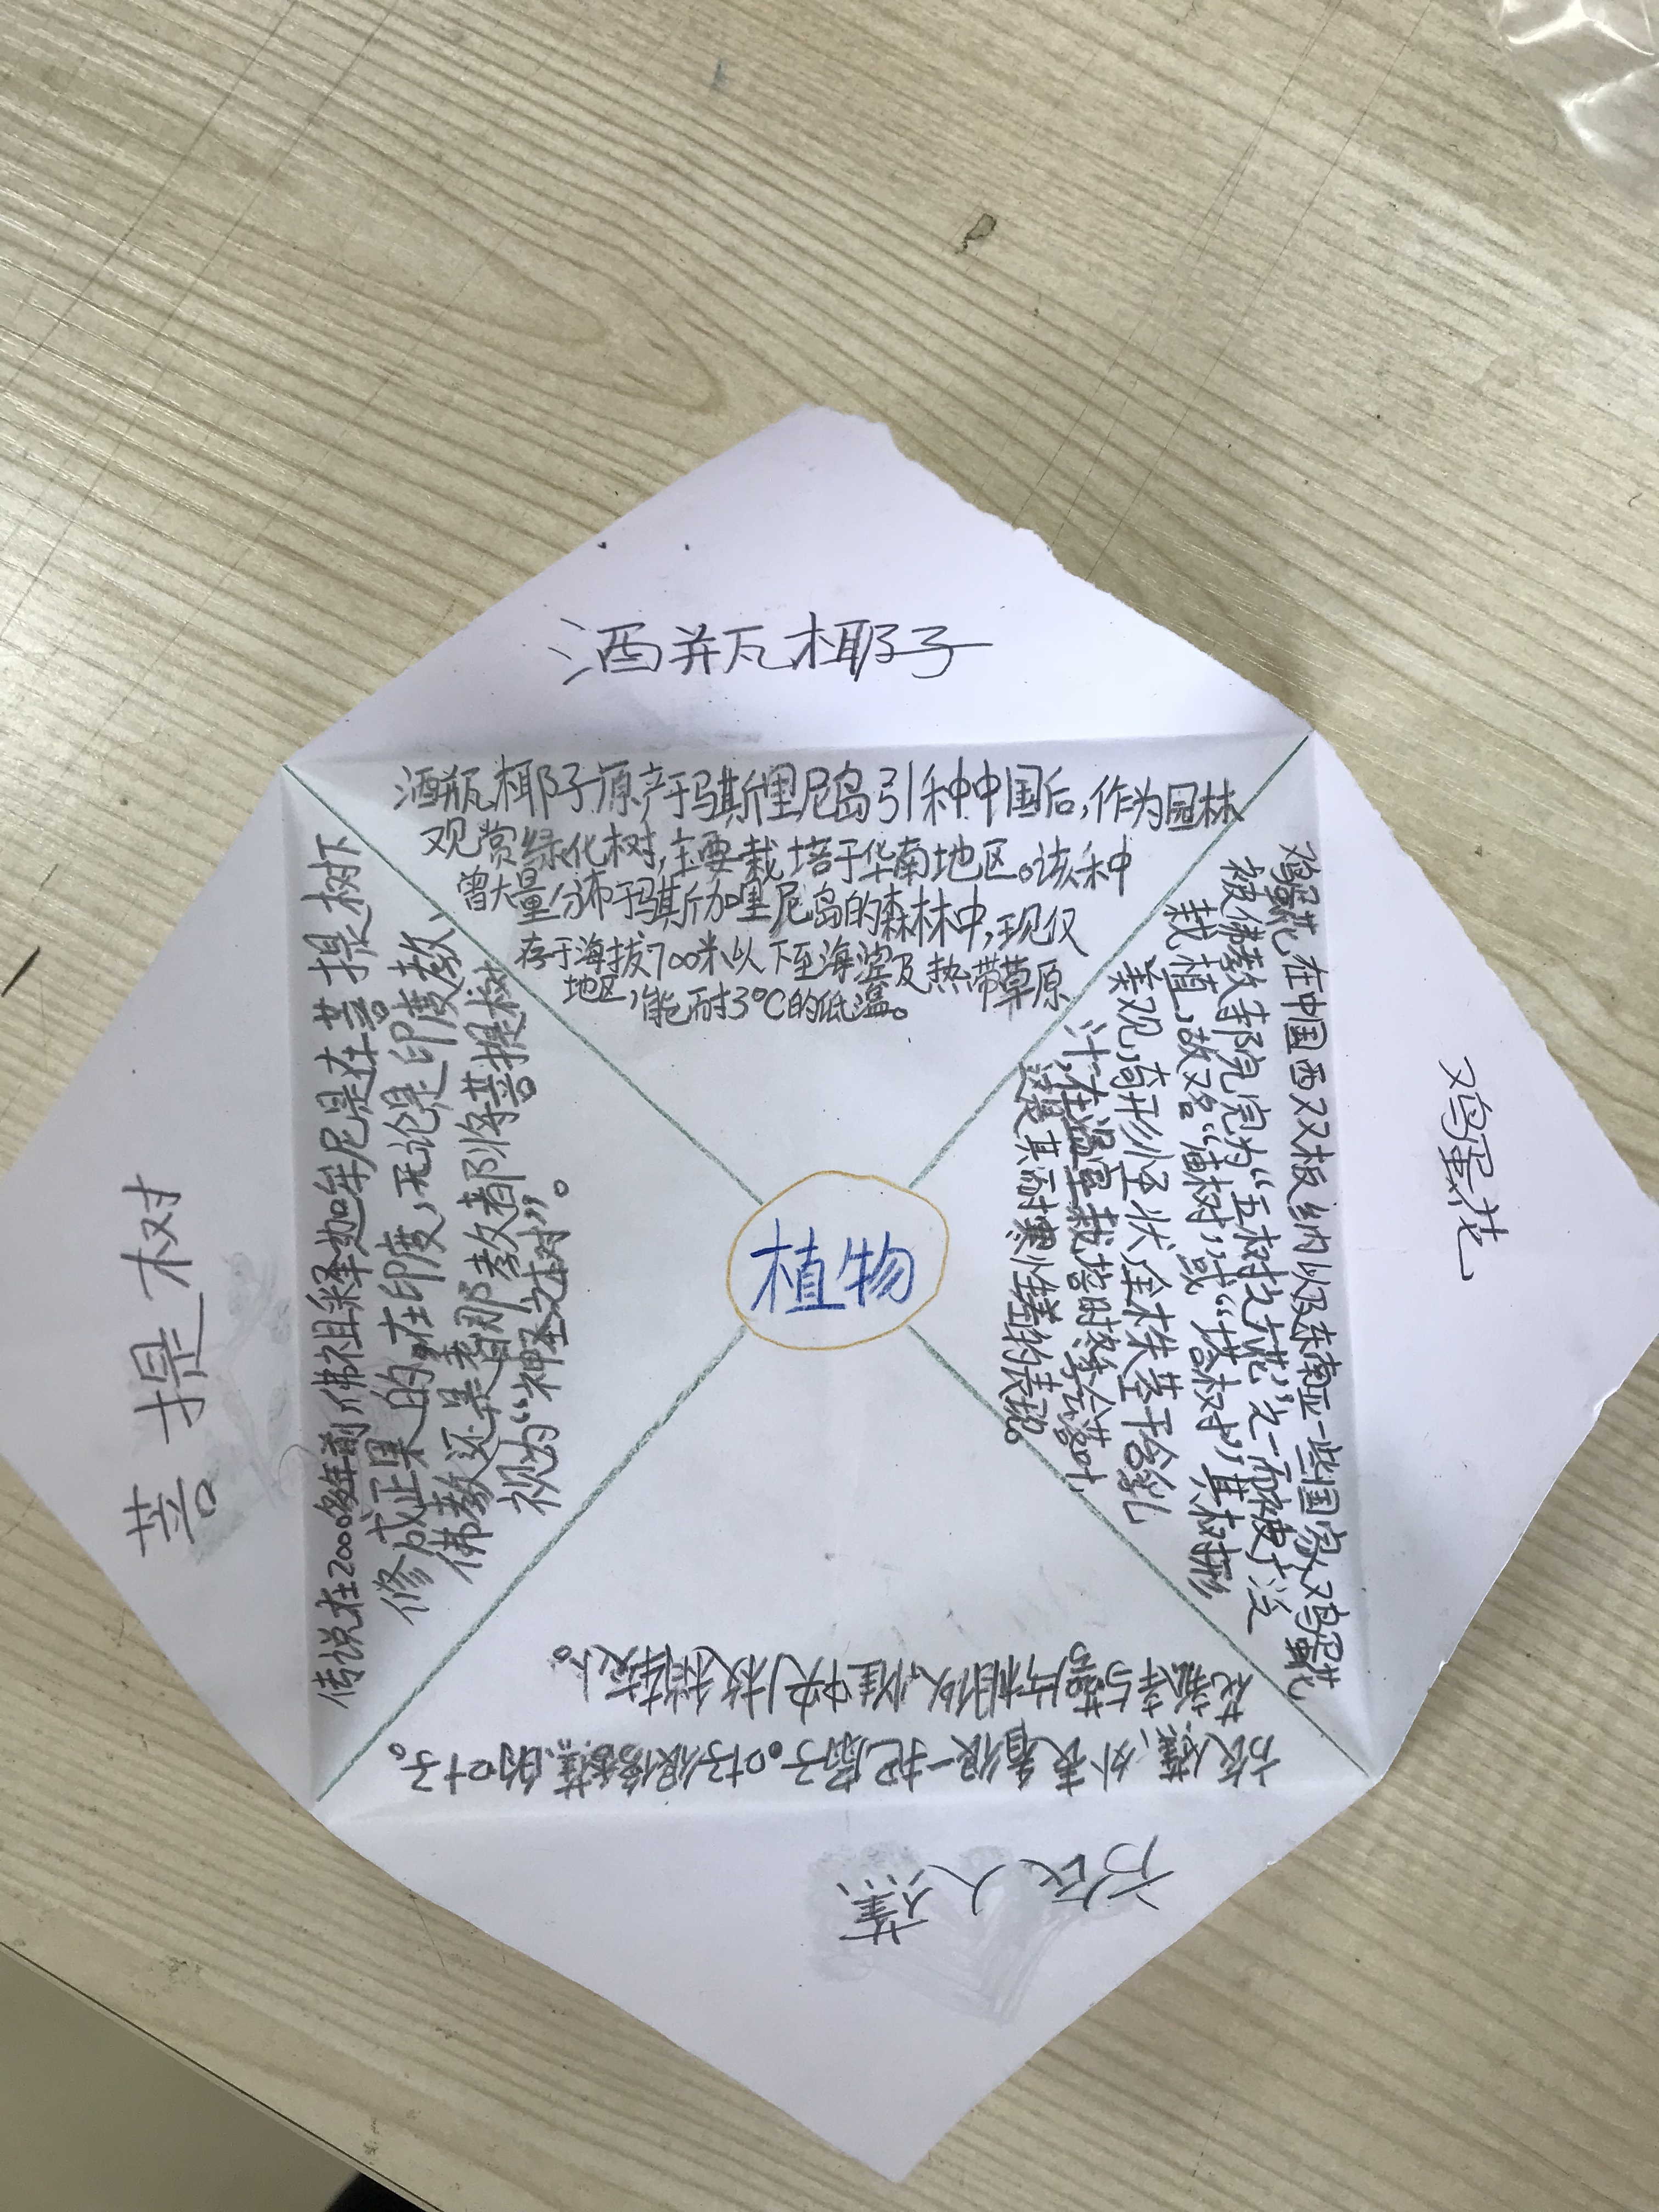 酒瓶椰子
酒瓶椰子原产于玛斯里尼岛引种中国后,作为园林
观赏绿化树,主要栽培于华南地区。该种
曾大量分布于玛斯加里尼岛的森林中,现仅
存于海拔700米以下至海滨及热带草原
地区,能耐3°C的低温。
鸡蛋花
鸡蛋花在中国西双板纳以及东南亚一些国家,鸡蛋花
被佛教寺院定为“五树六花”之一而被广泛
栽植,故又名“庙树”或“塔树”,其树形
美观,奇形怪状,全株茎干含乳
汁,在温室栽培时冬季会落叶,
这是其耐寒性差的表现。
旅人蕉
旅人蕉,外表看很一把扇子。叶子很像香蕉的叶子。
花瓣与萼片相似,惟中央1枚稍较小。
菩提树
传说在2000多年前,佛祖释迦牟尼是在菩提树下
修成正果的。在印度,无论是印度教、
佛教还是耆那教都将菩提树
视为“神圣之树”。
植物